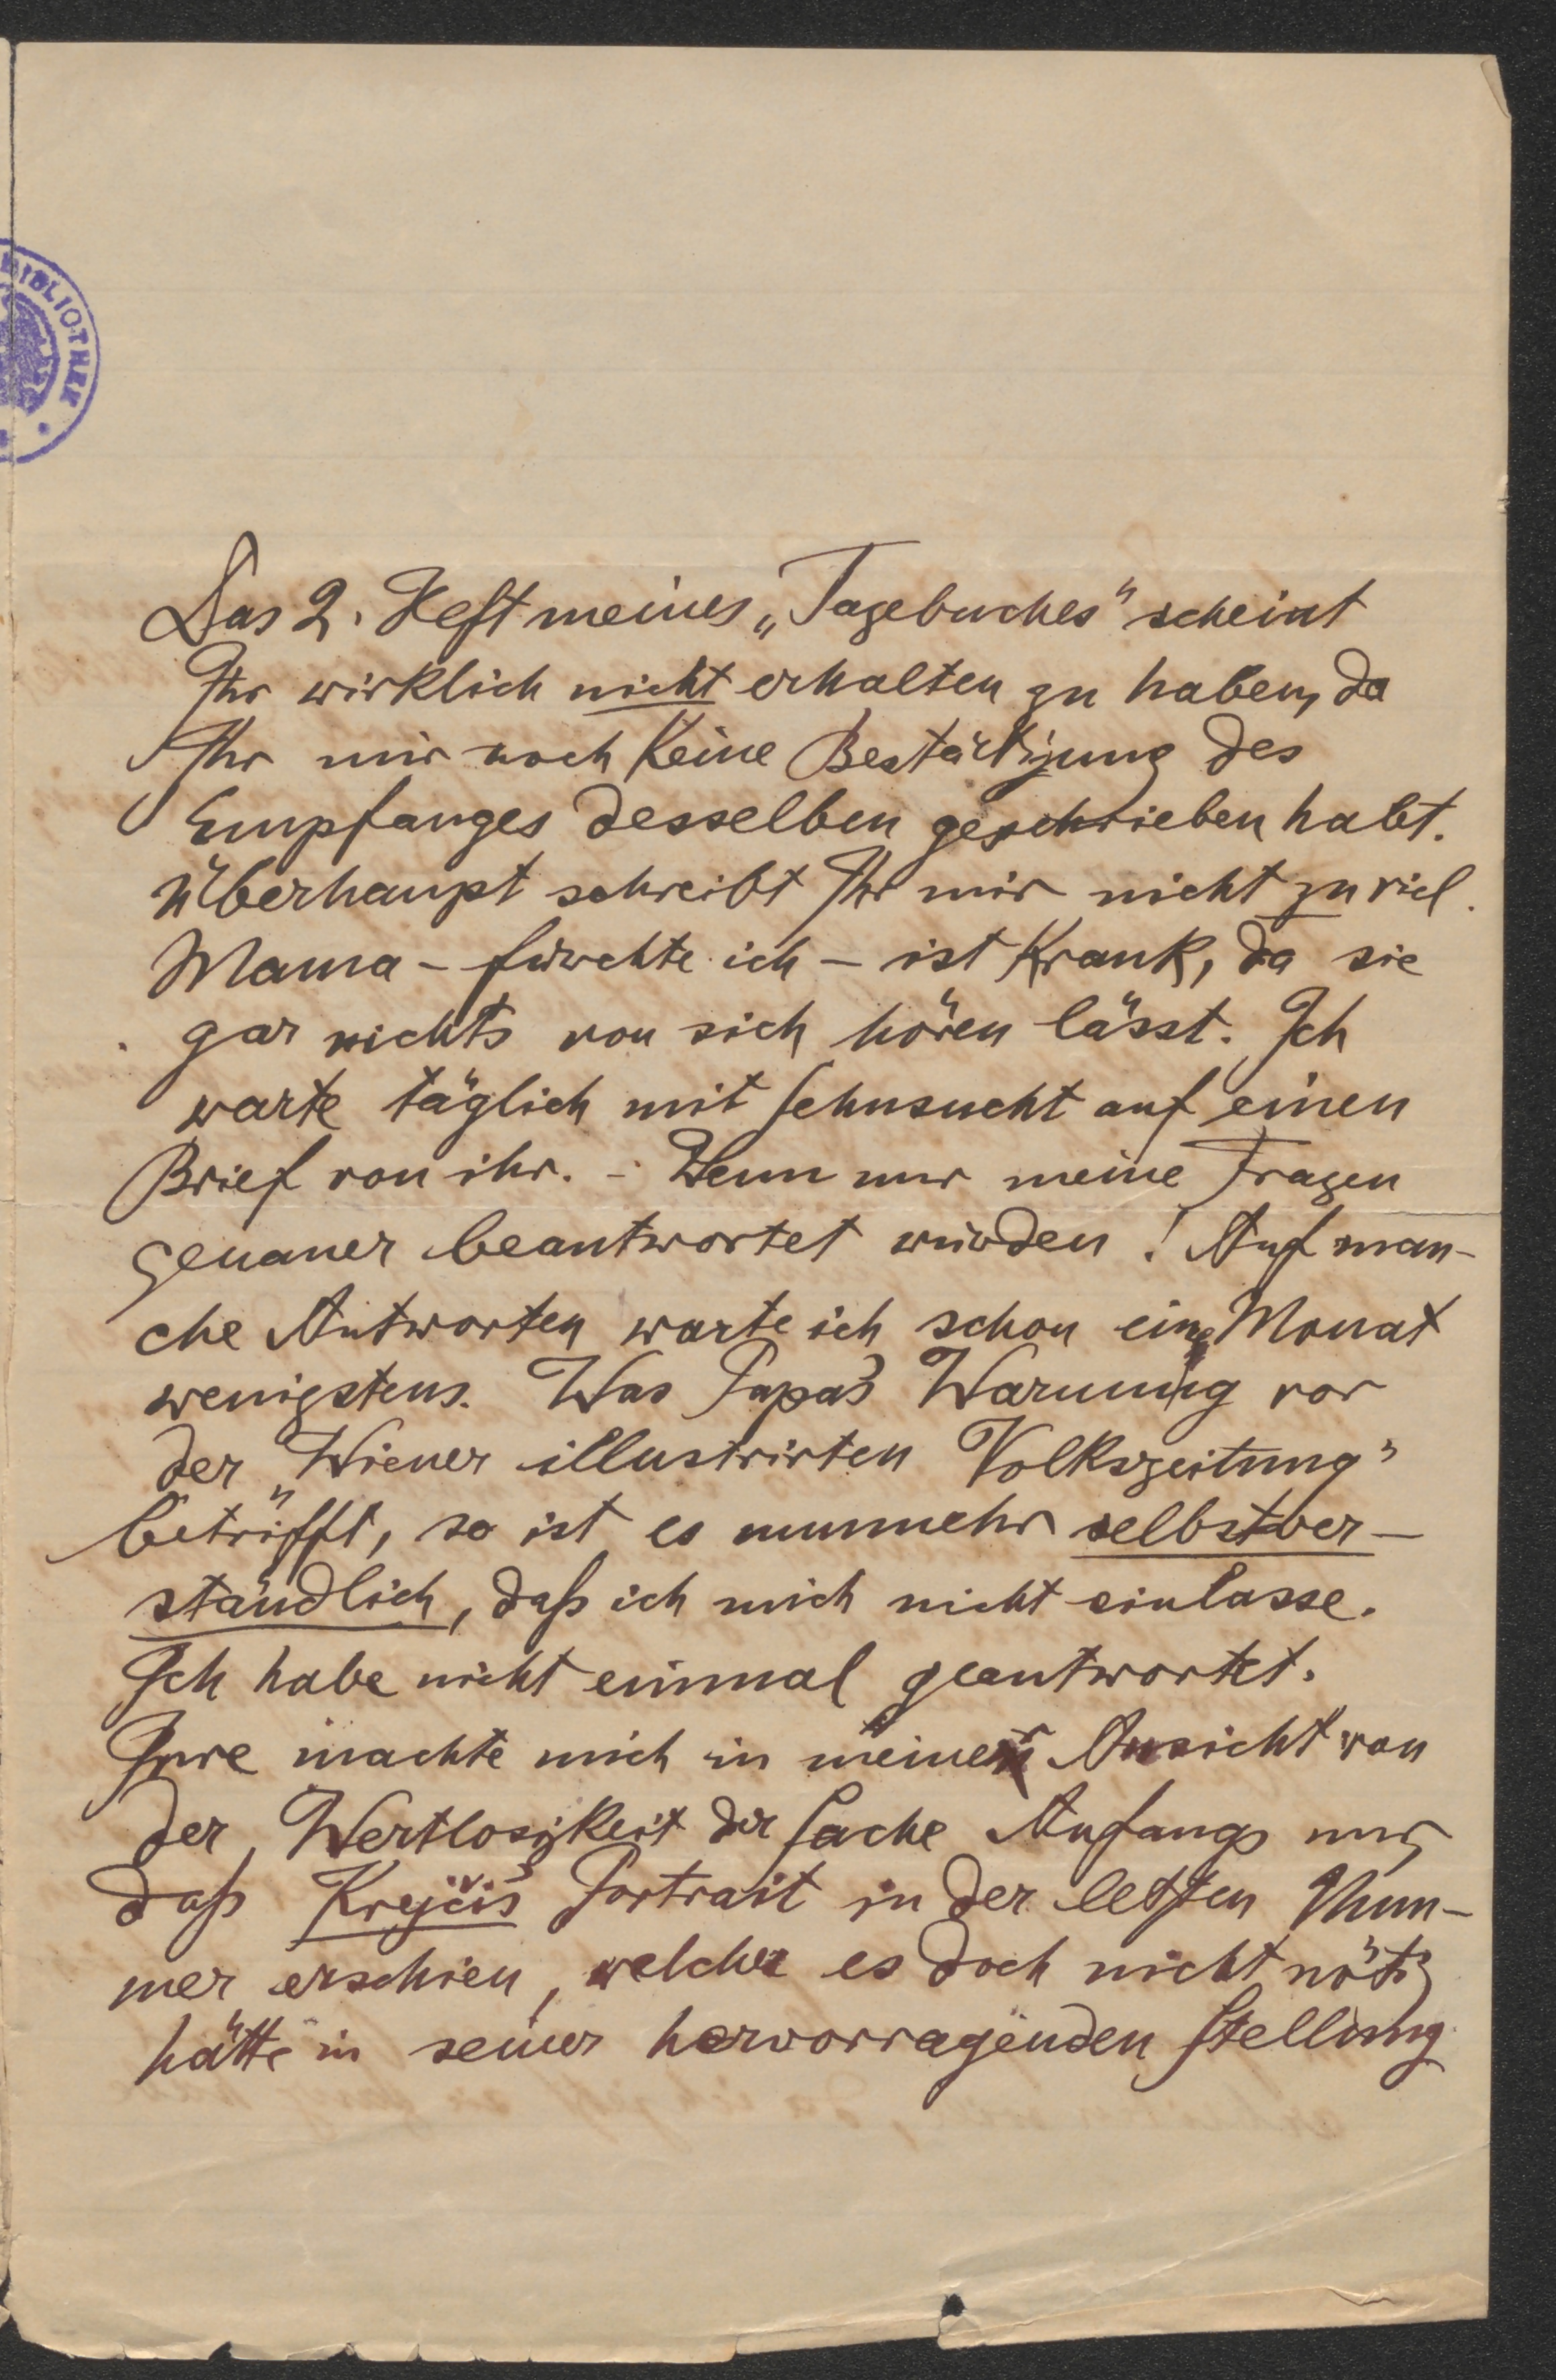 BIBLIOTHEK
Das 2. Heft meines „Tagebuches" scheint
Ihr wirklich nicht erhalten zu haben, da
Ihr mir noch keine Bestätigung des
Empfanges desselben geschrieben habt.
Überhaupt schreibt Ihr mir nicht zu viel.
Mama – fürchte ich – ist krank, da sie
gar nichts von sich hören lässt. Ich
warte täglich mit Sehnsucht auf einen
Brief von ihr. – Wenn nur meine Fragen
genauer beantwortet würden! Auf man-
che Antworten warte ich schon eine Monat
wenigstens. Was Papa's Warnung vor
der „Wiener illustrirten Volkszeitung"
betrifft, so ist es nunmehr selbstver-
ständlich, daß ich mich nicht einlasse.
Ich habe nicht einmal geantwortet.
Irre machte mich in meiner Ansicht von
der Wertlosigkeit der Sache Anfangs nur,
daß Krejči's Portrait in der letzten Num-
mer erschien, welcher es doch nicht nötig
hätte in seiner hervorragenden Stellung